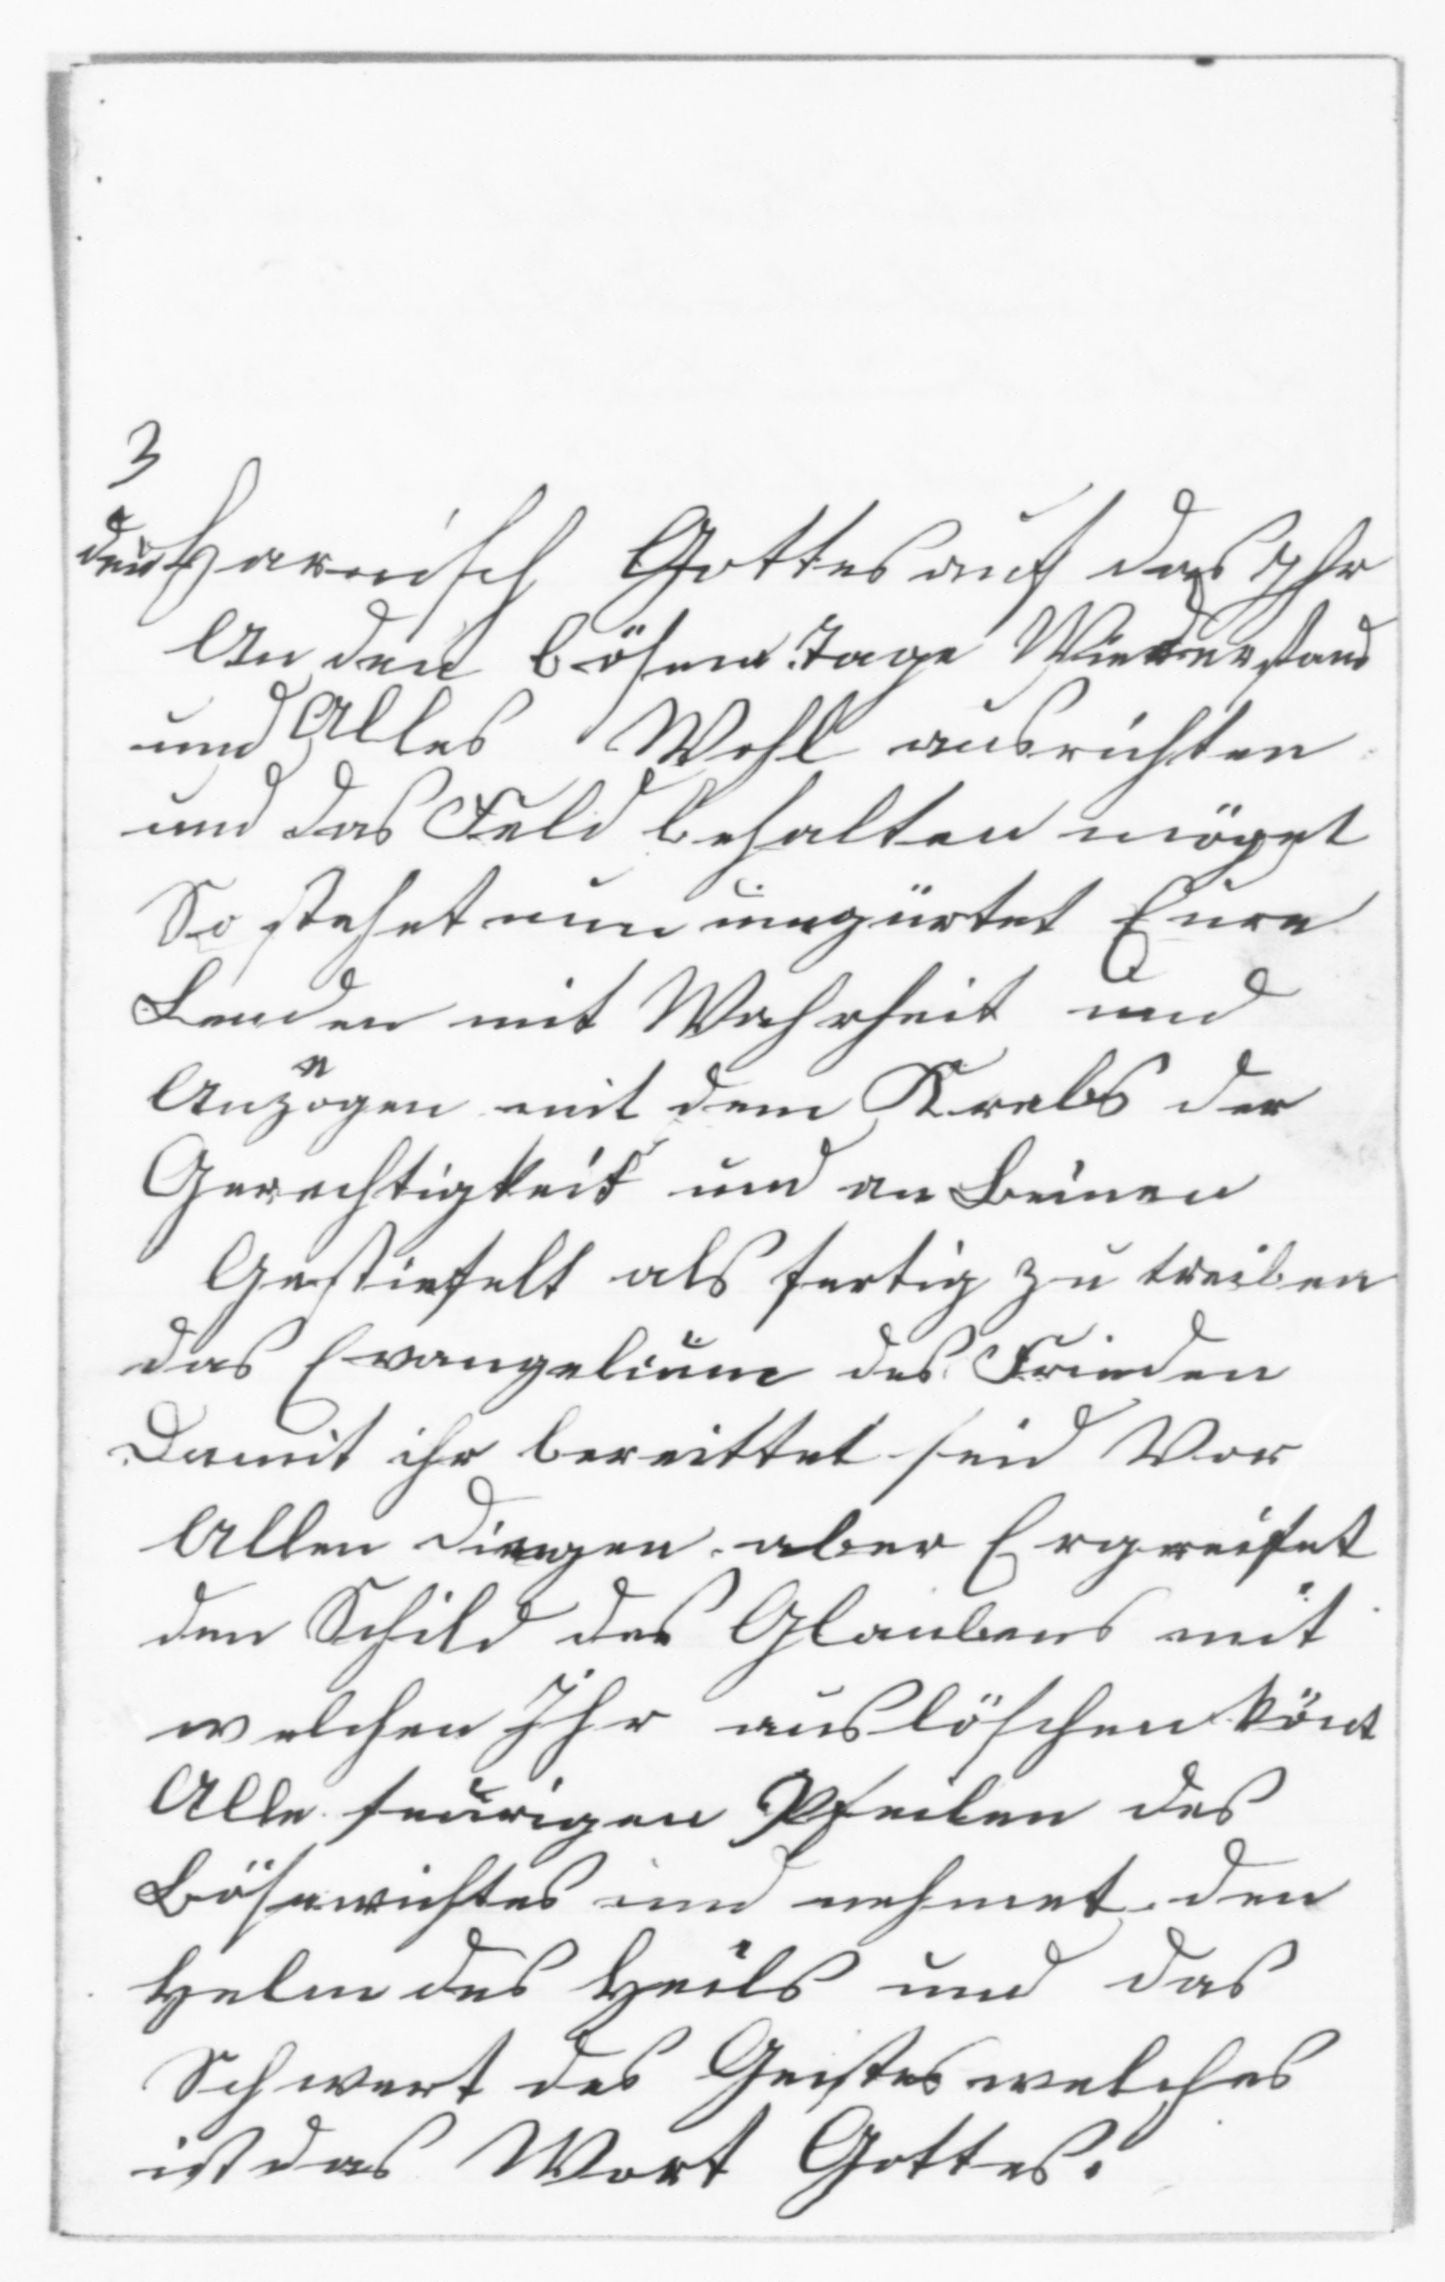 3
den Harnisch Gottes auf das Ihr
An den bösen Tage Wiederstand
und Alles Wohl ausrichten
und das Feld behalten möget
So stehet nun umgürtet Eure
Lenden mit Wahrheit und
Anzogen mit dem Krebs der
Gerechtigkeit und an Beinen
Gestiefelt als fertig zu treiben
das Evangelium des Frieden
Damit ihr bereittet seid Vor
Allen Dingen aber Ergreifet
den Schild des Glaubens mit
welchen Ihr auslöschen könt
Alle feurigen Pfeilen des
Bösewichtes und nehmet den
Helm des Heils und das
Schwert des Geistes welches
ist das Wort Gottes.